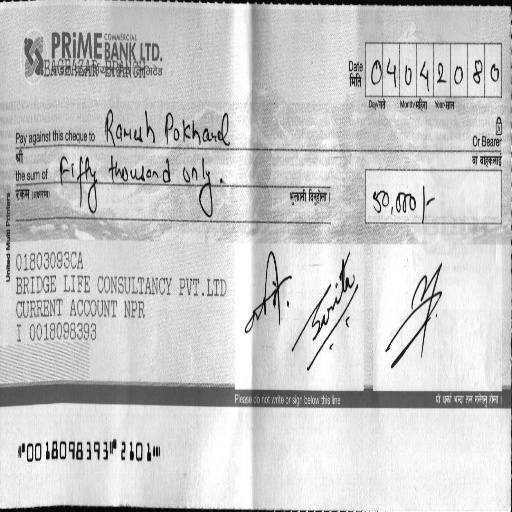 COMMERCIAL
PRIME BANK LTD.
BAGBAZAR BRANCH
Date
मिति
04042080
Day/गते Month/महिना Year/साल
Pay against this cheque to Ramesh Pokharel
Or Bearer
श्री
वा वाहकलाई
the sum of Fiffy thousand only.
रकम (अक्षरमा)
भुक्तानी दिनुहोला
50,000/-
United Multi Printers
01803093CA
BRIDGE LIFE CONSULTANCY PVT.LTD
CURRENT ACCOUNT NPR
I 0018098393
Sarita
Please do not write or sign below this line
⑈0018098393⑈ 2101⑈